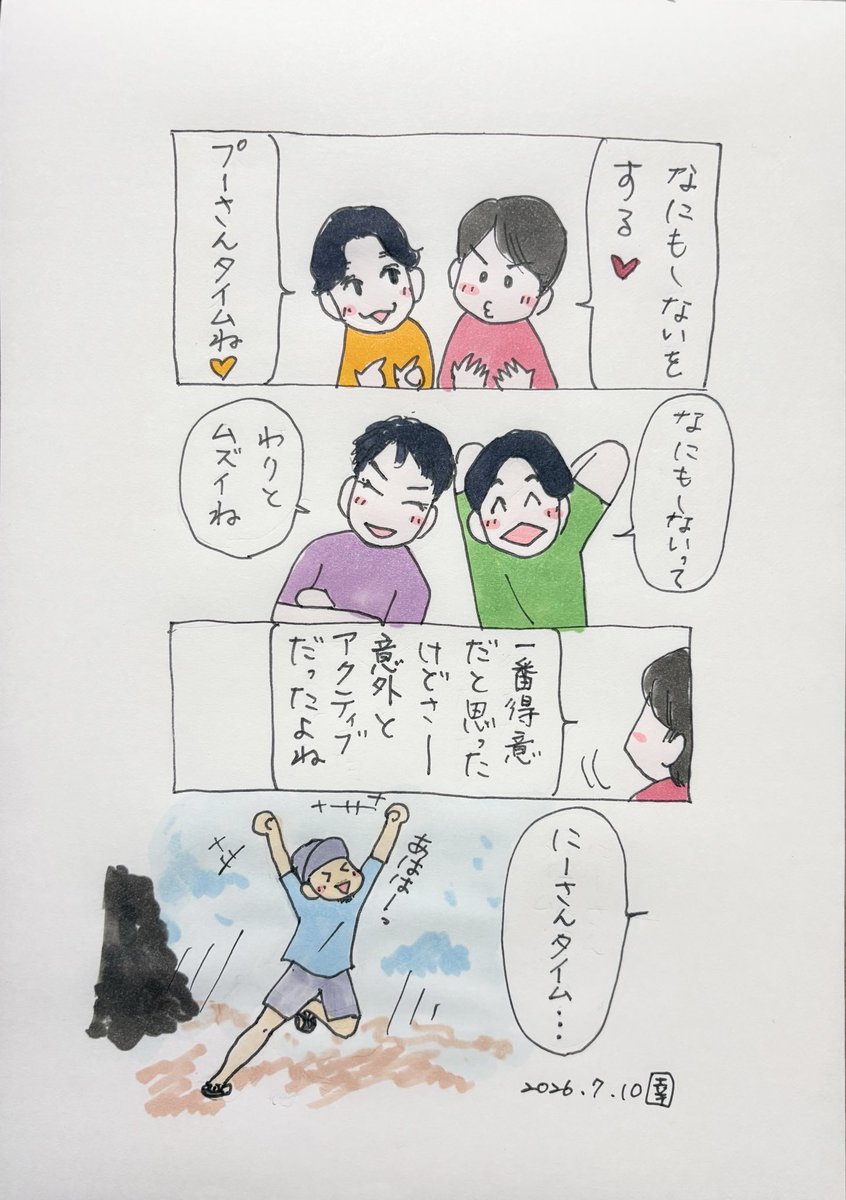 なにも〜ないを
する♥
プーさんタイムね♥
なにも〜ないって
わりと
ムズイね
一番得意
だと思った
けどさー
意外と
アクティブ
だったよね
にーさんタイム…
あははーっ
2026.7.10 幸